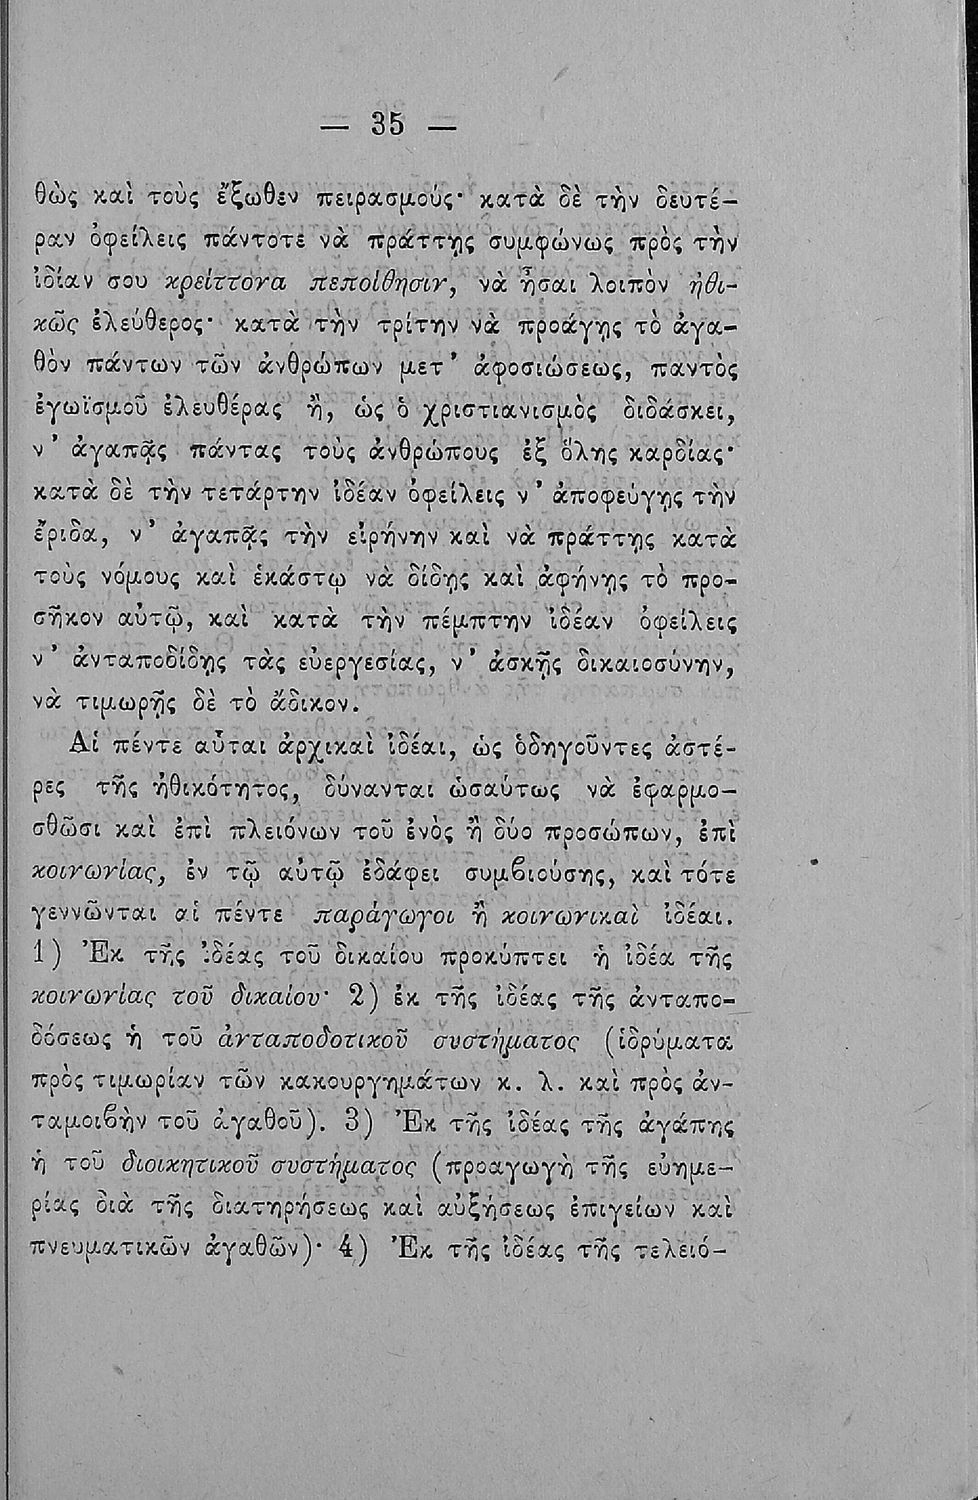 — 35 —
θὼς καὶ τοὺς ἔξωθεν πειρασμούς· κατὰ δὲ τὴν δευτέ-
ραν ὀφείλεις πάντοτε νὰ πράττῃς συμφώνως πρὸς τὴν
ἰδίαν σου κρείττονα πεποίθησιν, νὰ ἦσαι λοιπὸν ἠθι-
κῶς ἐλεύθερος· κατὰ τὴν τρίτην νὰ προάγῃς τὸ ἀγα-
θὸν πάντων τῶν ἀνθρώπων μετ’ ἀφοσιώσεως, παντὸς
ἐγωϊσμοῦ ἐλευθέρας ἢ, ὡς ὁ χριστιανισμὸς διδάσκει,
ν’ ἀγαπᾷς πάντας τοὺς ἀνθρώπους ἐξ ὅλης καρδίας·
κατὰ δὲ τὴν τετάρτην ἰδέαν ὀφείλεις ν’ ἀποφεύγῃς τὴν
ἔριδα, ν’ ἀγαπᾷς τὴν εἰρήνην καὶ νὰ πράττῃς κατὰ
τοὺς νόμους καὶ ἑκάστῳ νὰ δίδῃς καὶ ἀφήνῃς τὸ προ-
σῆκον αὐτῷ, καὶ κατὰ τὴν πέμπτην ἰδέαν ὀφείλεις
ν’ ἀνταποδίδῃς τὰς εὐεργεσίας, ν’ ἀσκῇς δικαιοσύνην,
νὰ τιμωρῇς δὲ τὸ ἄδικον.
Αἱ πέντε αὗται ἀρχικαὶ ἰδέαι, ὡς ὁδηγοῦντες ἀστέ-
ρες τῆς ἠθικότητος, δύνανται ὡσαύτως νὰ ἐφαρμο-
σθῶσι καὶ ἐπὶ πλειόνων τοῦ ἑνὸς ἢ δύο προσώπων, ἐπὶ
κοινωνίας, ἐν τῷ αὐτῷ ἐδάφει συμβιούσης, καὶ τότε
γεννῶνται αἱ πέντε παράγωγοι ἢ κοινωνικαὶ ἰδέαι.
1) Ἐκ τῆς ἰδέας τοῦ δικαίου προκύπτει ἡ ἰδέα τῆς
κοινωνίας τοῦ δικαίου· 2) ἐκ τῆς ἰδέας τῆς ἀνταπο-
δόσεως ἡ τοῦ ἀνταποδοτικοῦ συστήματος (ἱδρύματα
πρὸς τιμωρίαν τῶν κακουργημάτων κ. λ. καὶ πρὸς ἀν-
ταμοιβὴν τοῦ ἀγαθοῦ). 3) Ἐκ τῆς ἰδέας τῆς ἀγάπης
ἡ τοῦ διοικητικοῦ συστήματος (προαγωγὴ τῆς εὐημε-
ρίας διὰ τῆς διατηρήσεως καὶ αὐξήσεως ἐπιγείων καὶ
πνευματικῶν ἀγαθῶν)· 4) Ἐκ τῆς ἰδέας τῆς τελειό-